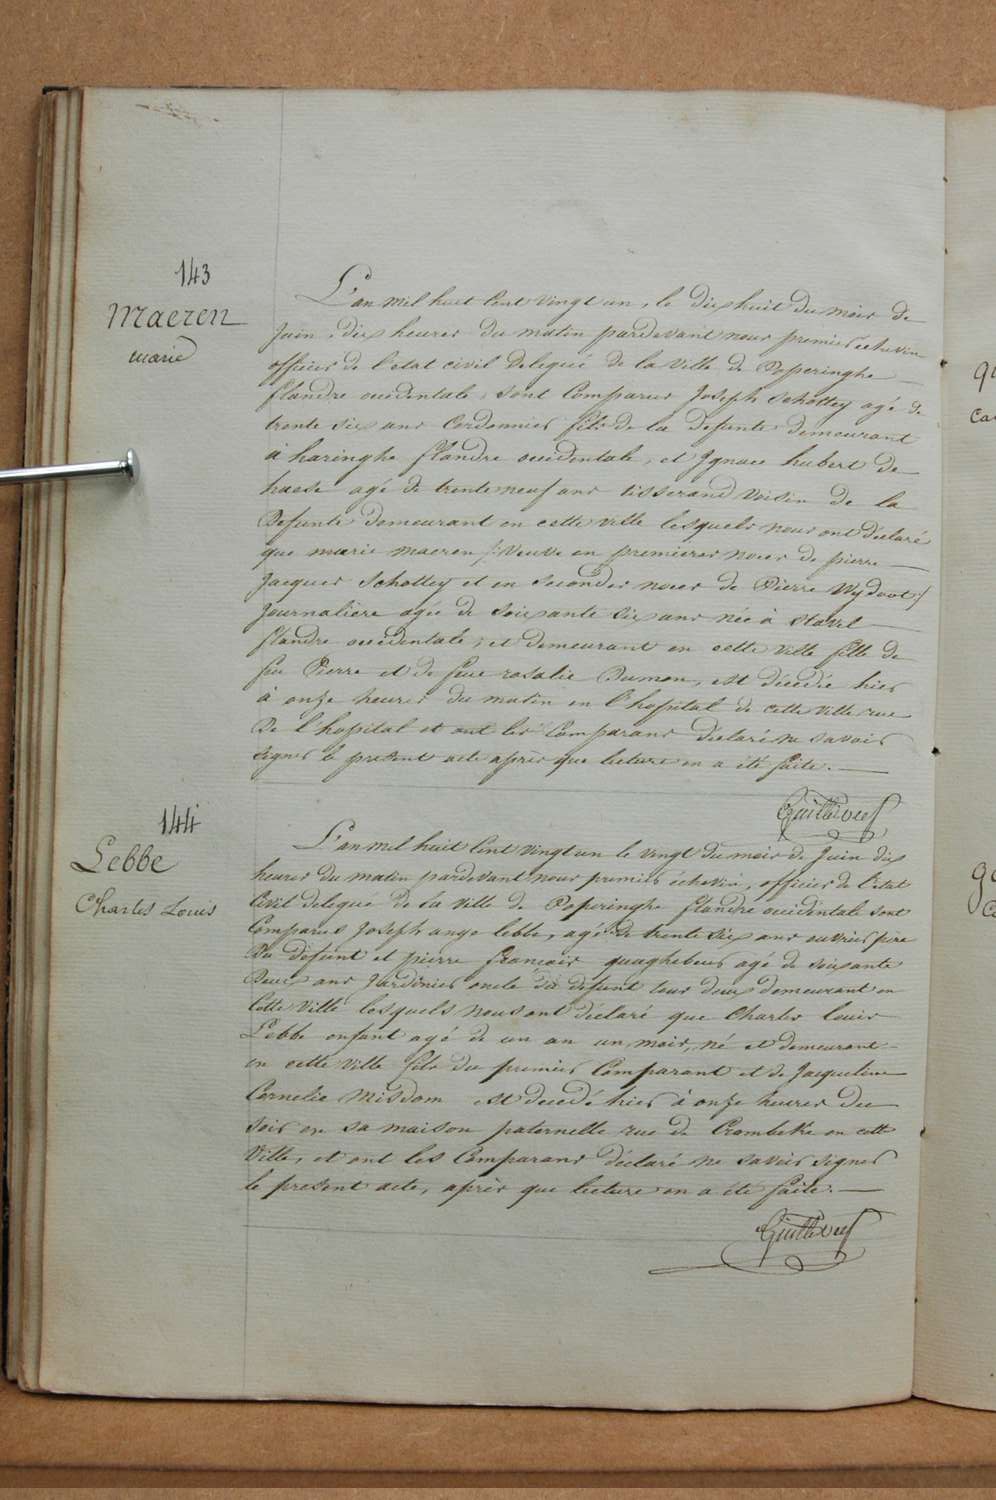 143
Maeren
marie
L'an mil huit Cent Vingt un, le dix huit du mois de
Juin, dix heures du matin pardevant nous premier echevin
officier de l'etat civil delegué de la Ville de Poperinghe
flandre occidentale, sont Comparus Joseph Schottey agé de
trente six ans Cordonnier fils de la defunte demeurant
à haringhe flandre occidentale, et Ignace hubert de
haese agé de trente neuf ans tisserand Voisin de la
Defunte demeurant en cette ville lesquels nous ont déclaré
que marie maeren /: Veuve en premieres noces de pierre
Jacques Schottey et en secondes noces de Pierre Wydoot:/
Journaliere agée de soixante six ans née à Stavel
flandre occidentale, et demeurant en cette Ville fille de
feu Pierre et de feue rosalie Dumon, est décédée hier
à onze heures du matin en l'hopital de cette Ville rue
De l'hopital et ont les Comparans déclaré ne savoir
signer le present acte après que lecture en a été faite.
144
Lebbe
Charles Louis
L'an mil huit Cent Vingt un le vingt du mois de Juin dix
heures du matin pardevant nous premier échevin, officier de l'etat
Civil delegué de la Ville de Poperinghe flandre occidentale sont
Comparus Joseph ange lebbe, agé de trente six ans ouvrier père
Du défunt et pierre françois quaghebeur agé de soixante
Deux ans Jardinier oncle du défunt tous deux demeurant en
Cette Ville lesquels nous ont déclaré que Charles louis
Lebbe enfant agé de un an un mois, né et demeurant
en cette Ville fils du premier Comparant et de Jacqueline
Cornelie Misdom est decedé hier à onze heures du
soir en sa maison paternelle rue de Crombeke en cette
Ville, et ont les Comparans déclaré ne savoir signer
le present acte, après que lecture en a été faite.